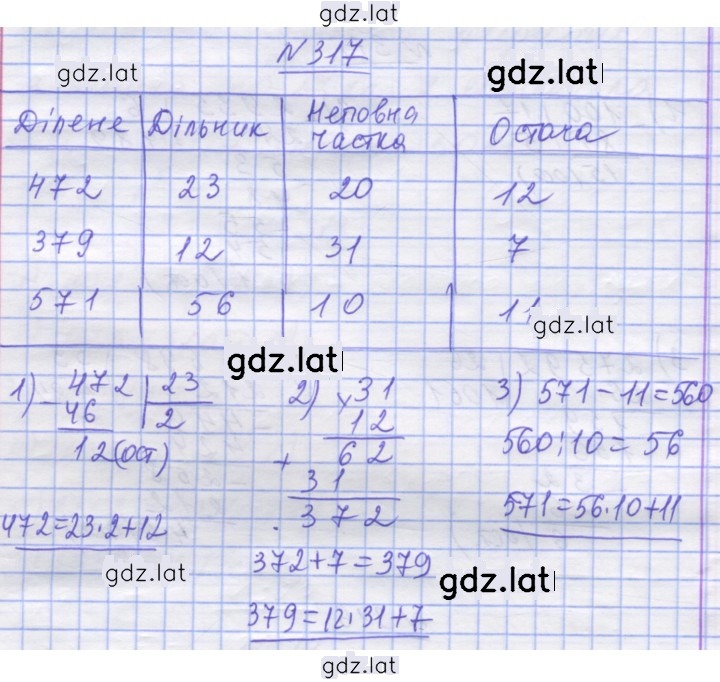 gdz.lat
N 317
gdz.lat gdz.lat
Ділене Дільник Неповна частка Остача
472 23 20 12
379 12 31 7
571 56 10 11
gdz.lat
gdz.lat
1) - 472 | 23
46 2
12(ост)
472=23·2+12
gdz.lat
2) × 31
12
62
+
31
372
372+7=379
379=12·31+7
3) 571-11=560
560:10=56
571=56·10+11
gdz.lat
gdz.lat